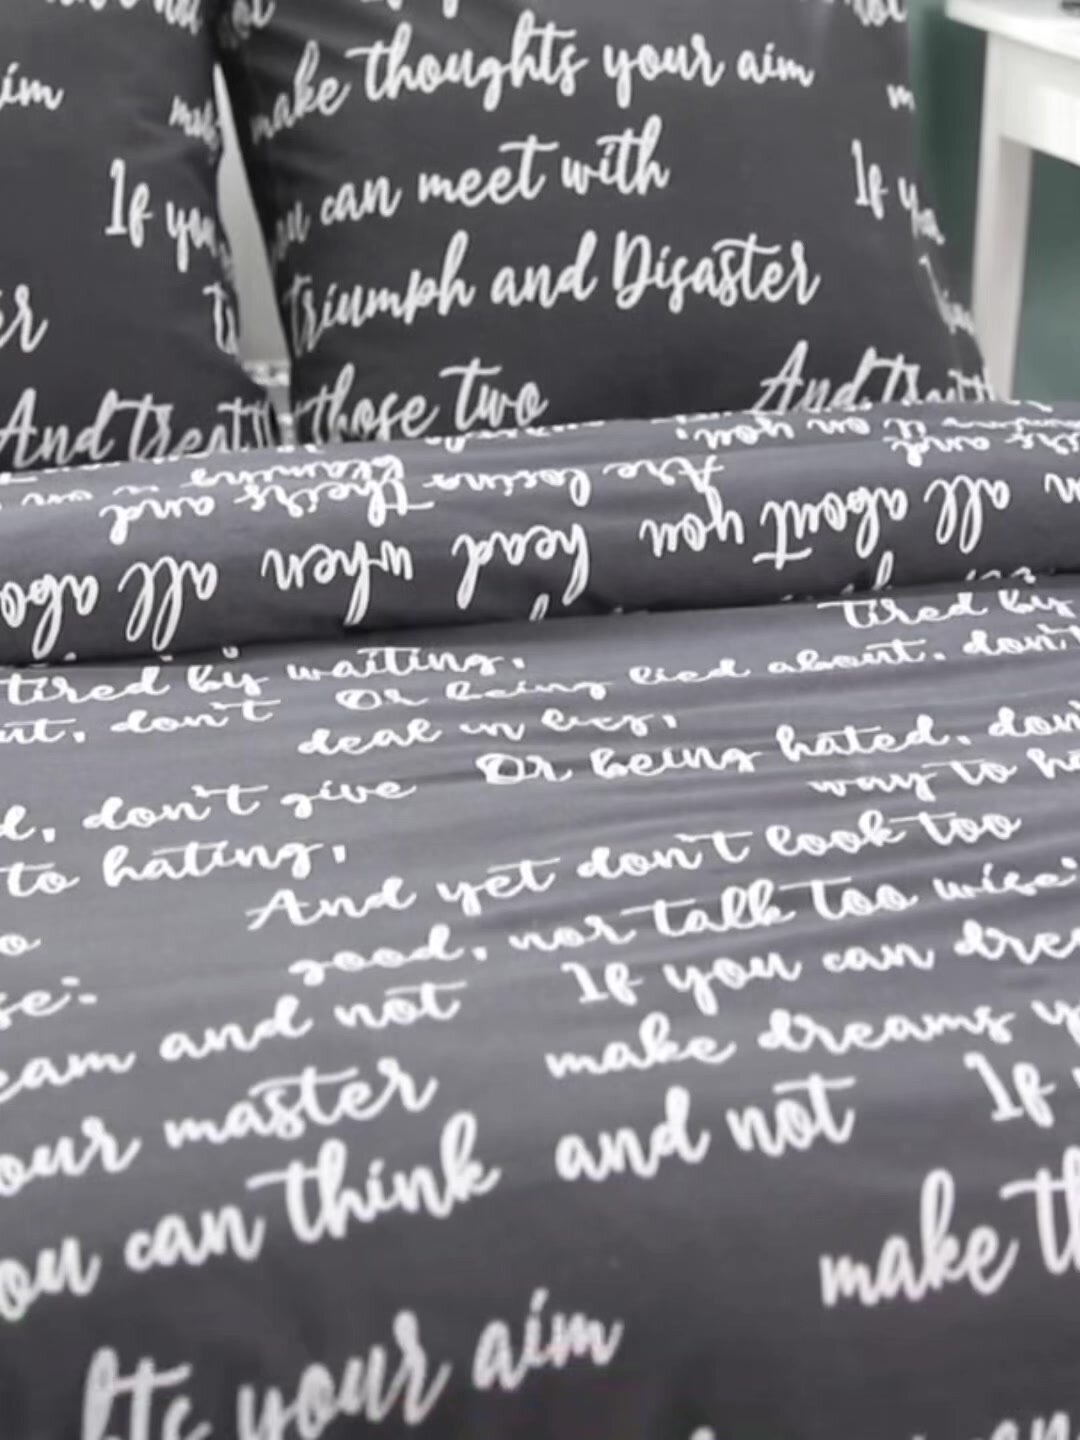 make thoughts your aim
aim
If you
can meet with
If
triumph and Disaster
And treat
those two
And treat
it on you,
theirs and
Are losing
theirs and
all about you
head when all
tired by
tired by waiting,
Or being lied about, don't
don't
deal in lies,
Or being hated, don't
don't give
way to
to hating,
And yet don't look too
good, nor talk too wise:
and not
If you can
make dreams
master
If
can think
and not
make
your aim